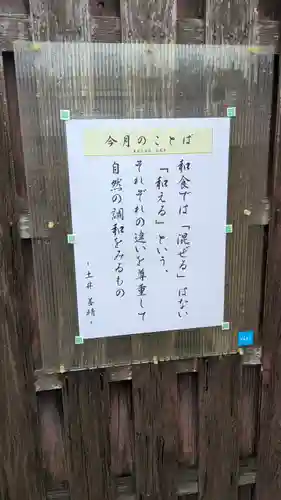 今月のことば
和食では「混ぜる」はない
「和える」という。
それぞれの違いを尊重して
自然の調和をみるもの
・土井善晴・